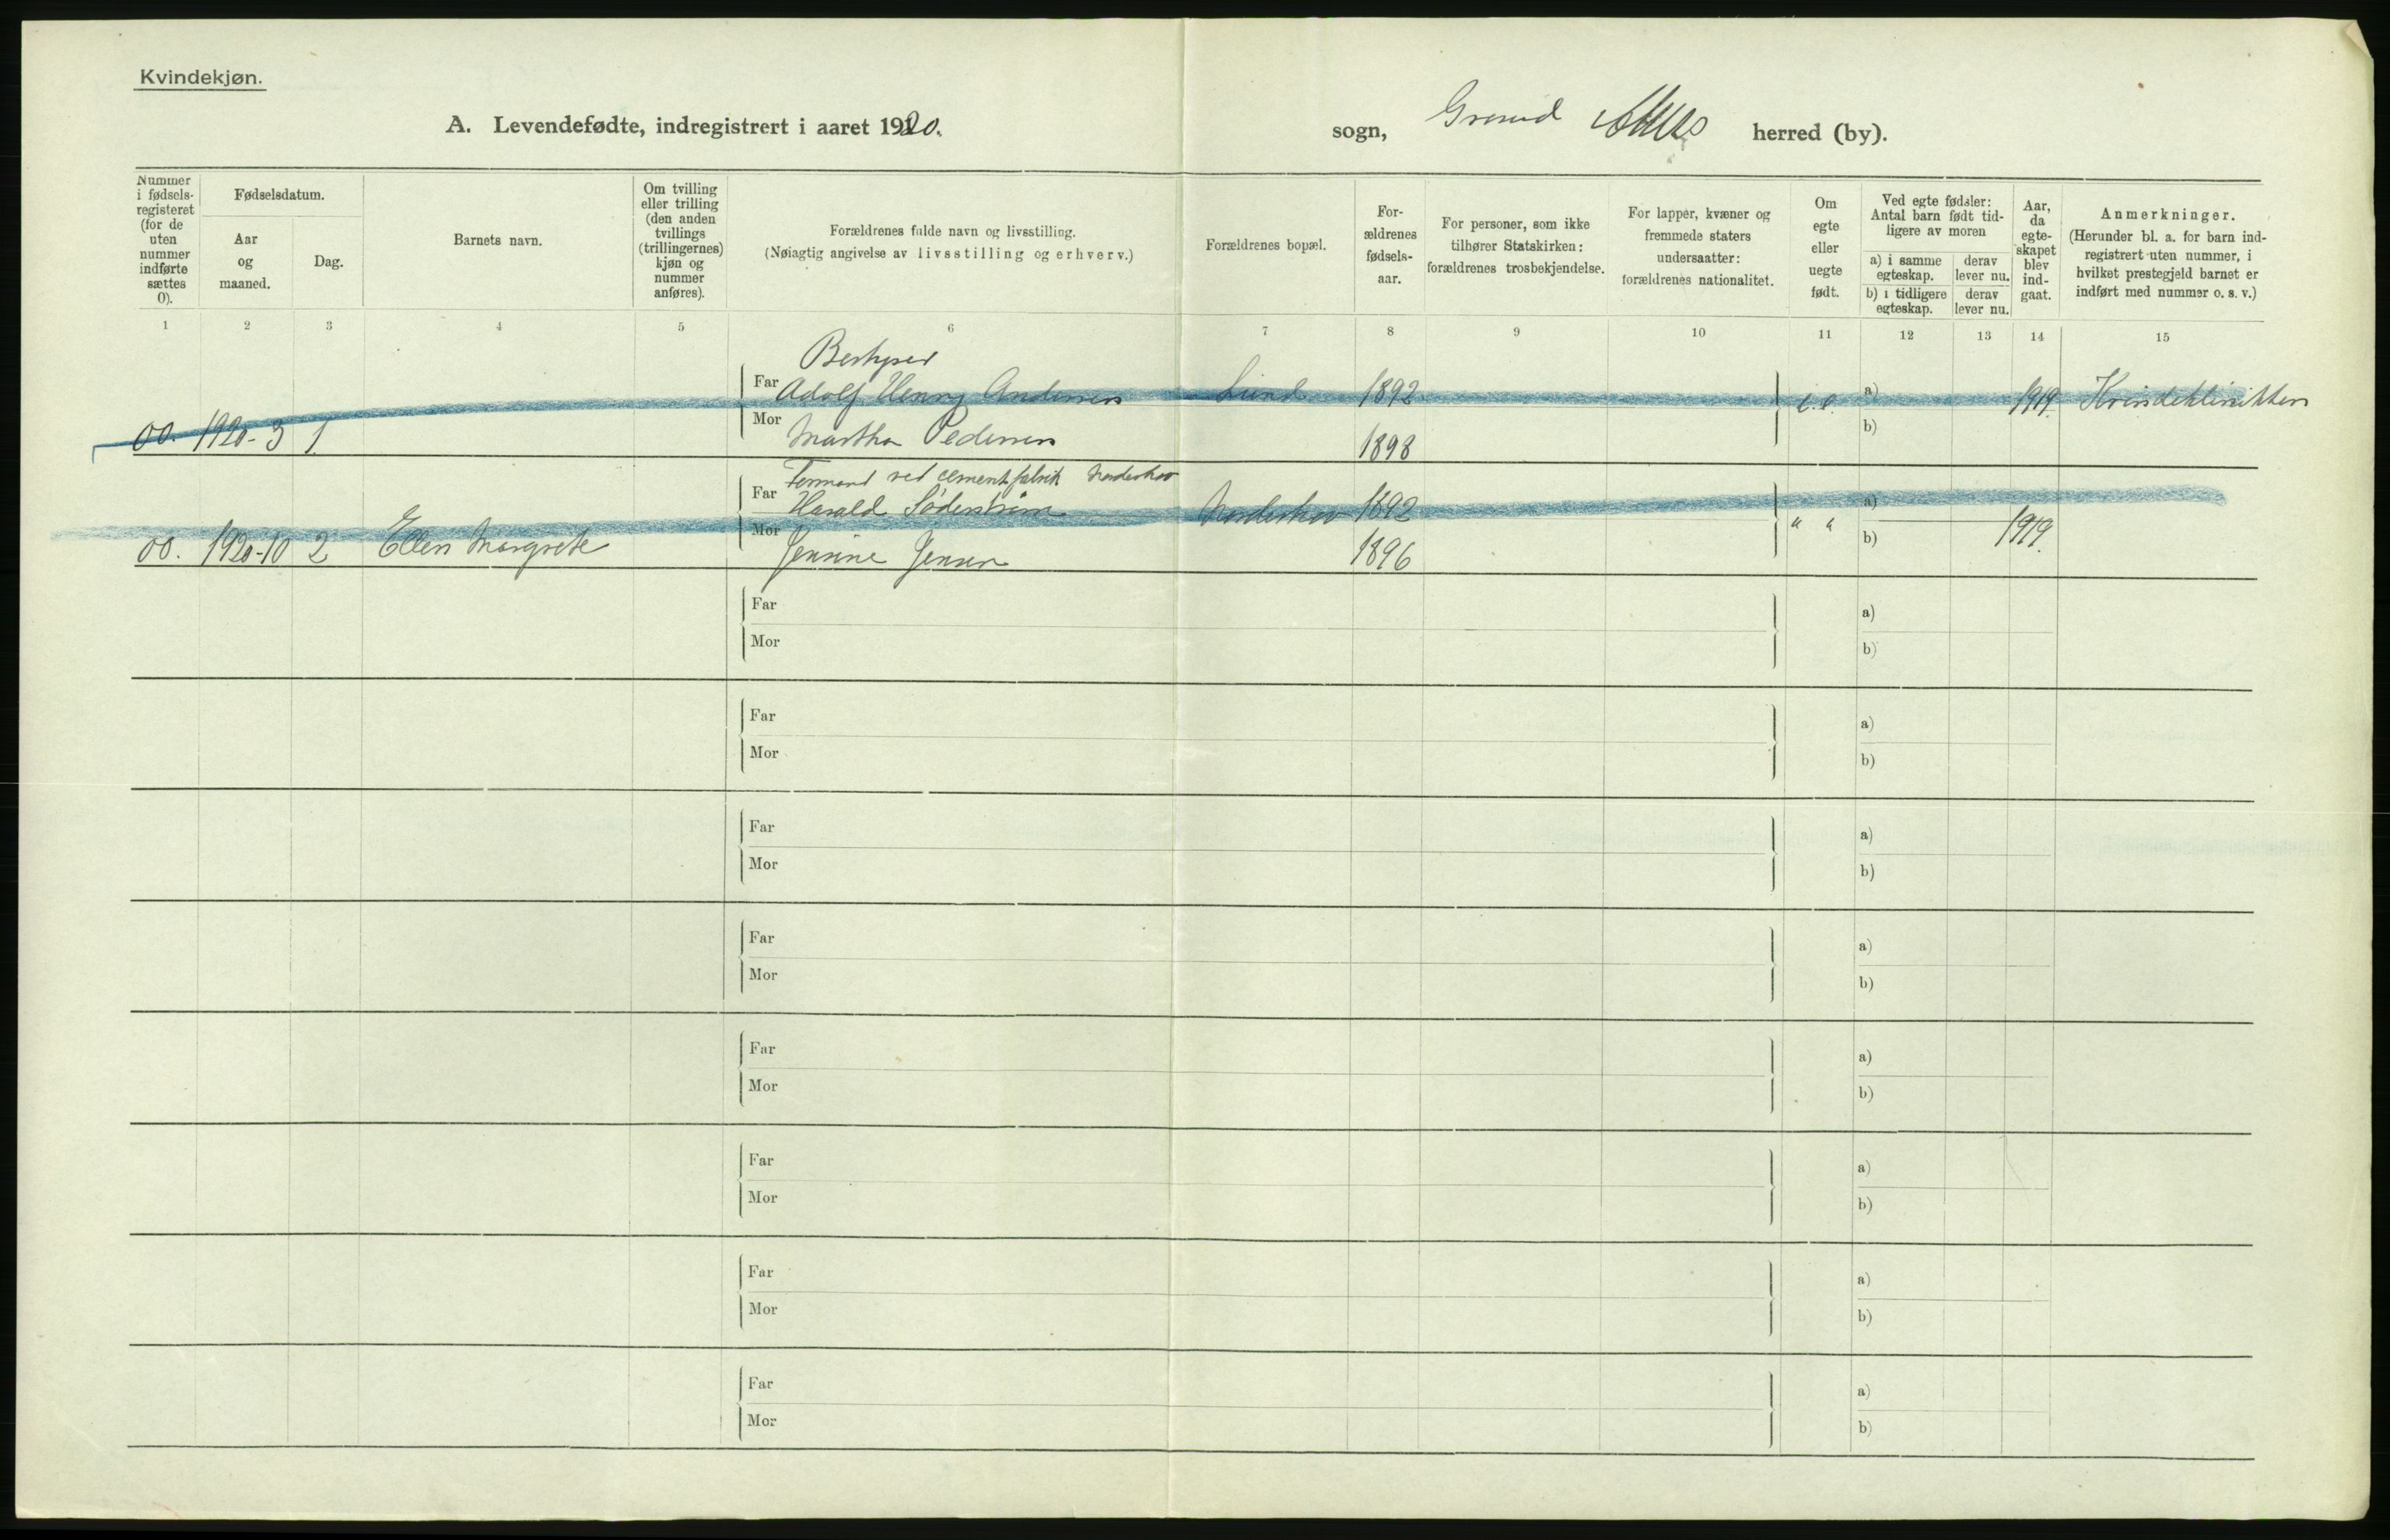 Kvindekjøn.
A. Levendefødte, indregistrert i aaret 1920.
sogn, Grsund Akers herred (by).
Nummer i fødsels-registeret (for de uten nummer indførte sættes 0).
Fødselsdatum.
Aar og maaned.
Dag.
Barnets navn.
Om tvilling eller trilling (den anden tvillings (trillingernes) kjøn og nummer anføres).
Forældrenes fulde navn og livsstilling.
(Nøiagtig angivelse av livsstilling og erhverv.)
Forældrenes bopæl.
For-ældrenes fødsels-aar.
For personer, som ikke tilhører Statskirken: forældrenes trosbekjendelse.
For lapper, kvæner og fremmede staters undersaatter: forældrenes nationalitet.
Om egte eller uegte født.
Ved egte fødsler: Antal barn født tid-ligere av moren
a) i samme egteskap.
derav lever nu.
b) i tidligere egteskap.
derav lever nu.
Aar, da egte-skapet blev ind-gaat.
Anmerkninger.
(Herunder bl. a. for barn ind-registrert uten nummer, i hvilket prestegjeld barnet er indført med nummer o. s. v.)
1 2 3 4 5 6 7 8 9 10 11 12 13 14 15
Bestyrer
Far Adolf Henry Andersen Lund 1892 e. e. a) 1919 Kvindeklinikken
00. 1920-3 1 Mor Martha Pedersen 1898 b)
Formand ved cementfabrik Norderhov
Far Harald Söderström Norderhov 1892 " " a)
00. 1920-10 2 Ellen Margrete Mor Jensine Jensen 1896 b) 1919.
Far a)
Mor b)
Far a)
Mor b)
Far a)
Mor b)
Far a)
Mor b)
Far a)
Mor b)
Far a)
Mor b)
Far a)
Mor b)
Far a)
Mor b)